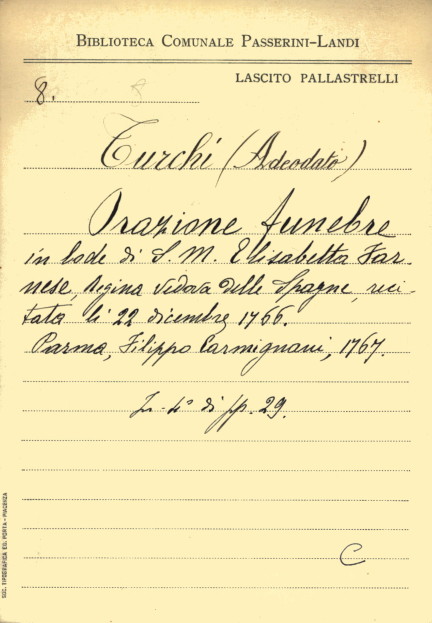 BIBLIOTECA COMUNALE PASSERINI-LANDI
LASCITO PALLASTRELLI
8. 8
Turchi (Adeodato)
Orazione funebre
in lode di S. M. Elisabetta Far-
nese, Regina vedova delle Spagne, reci-
tata li 22 dicembre 1766.
Parma, Filippo Carmignani, 1767.
In-4° di pp. 29.
C
SOC. TIPOGRAFICA ED. PORTA - PIACENZA